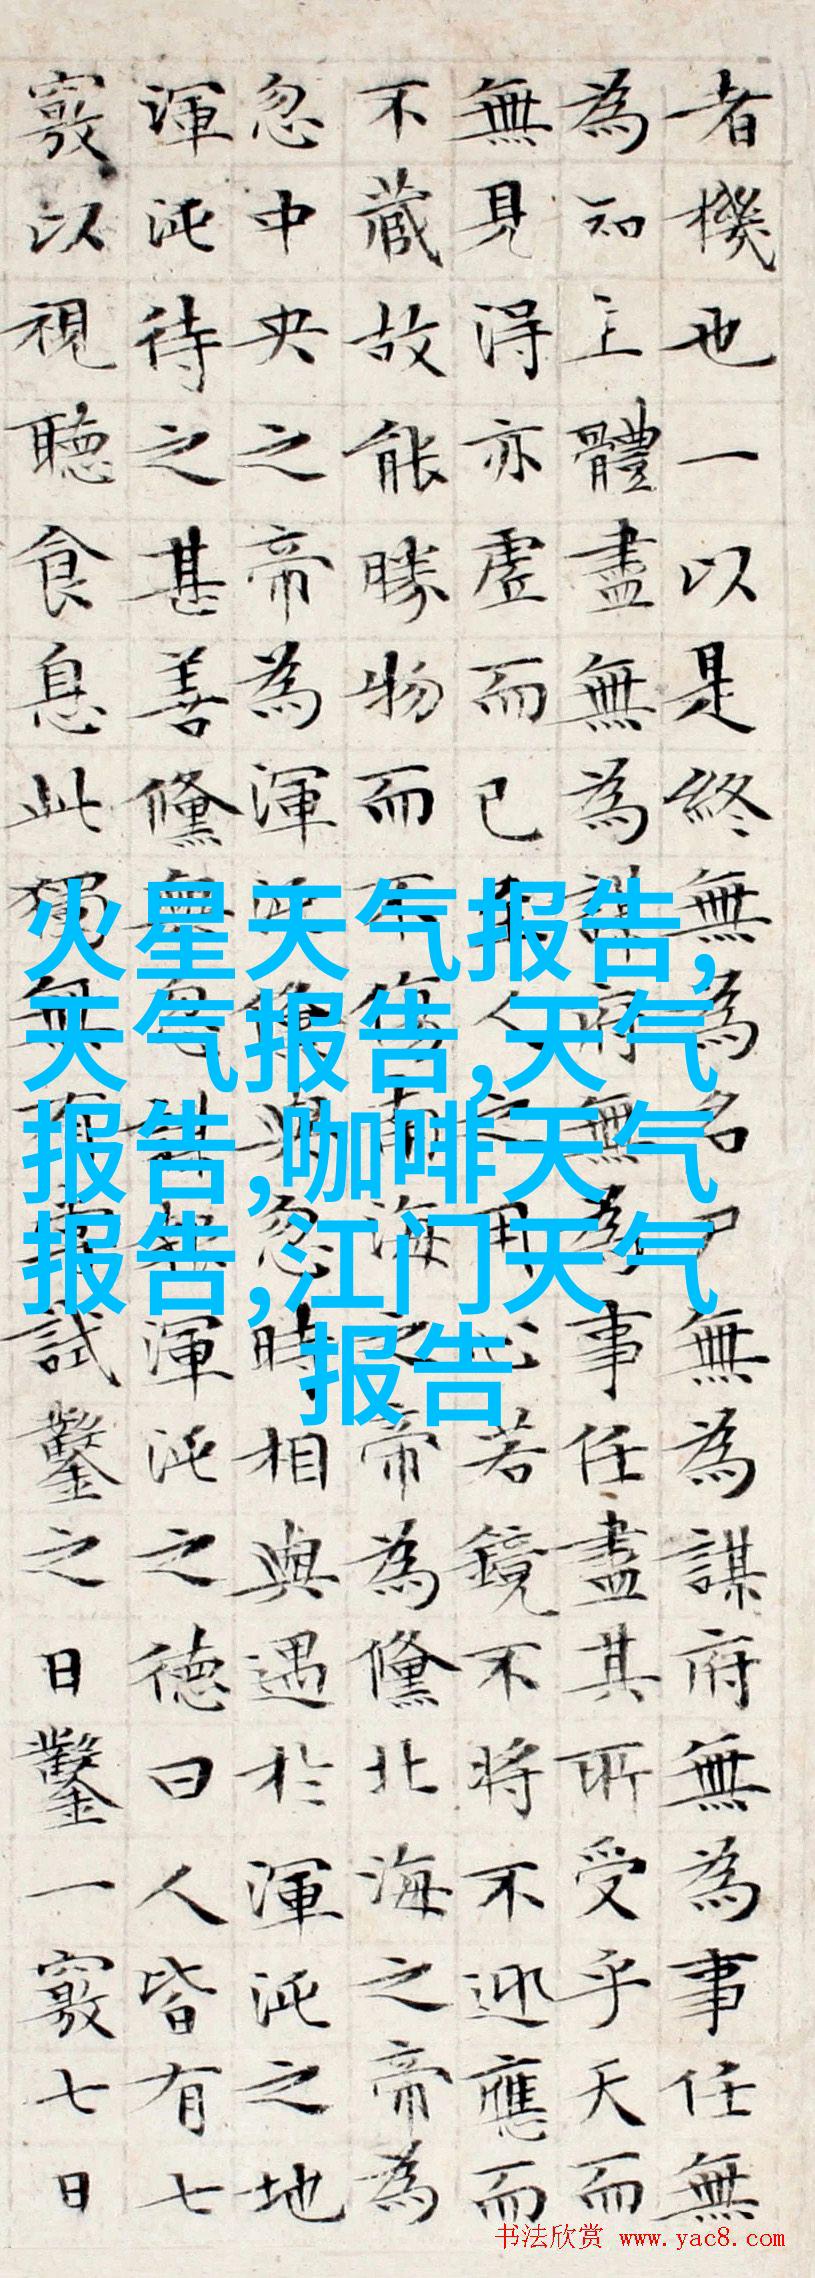 者機也一以是終無為名尸無為謀府無為事任無
為知主體盡無為謀府無為事任盡其所受乎天而
無見得亦虛而已至人之用心若鏡不將不迎應而
不藏故能勝物而不傷南海之帝為儵北海之帝為
忽中央之帝為渾沌儵與忽時相與遇於渾沌之地
渾沌待之甚善儵忽謀報渾沌之德曰人皆有七
竅以視聽食息此獨無有嘗試鑿之日鑿一竅七日
火星天气报告,
天气报告,天气
报告,咖啡天气
报告,江门天气
报告
书法欣赏 www.yac8.com